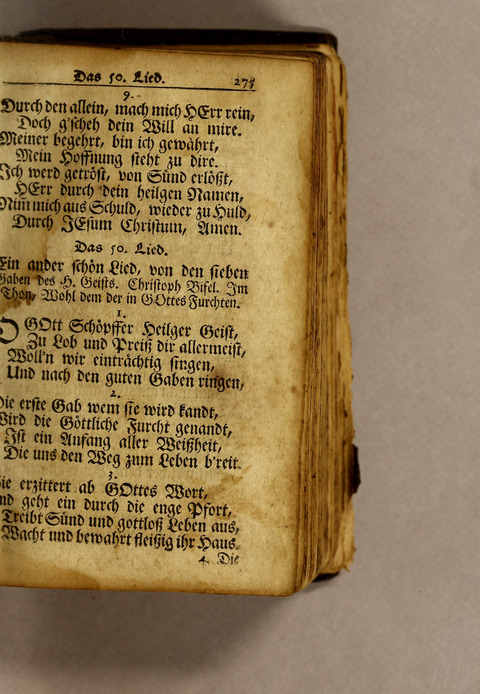 Das 50. Lied. 275
9.
Durch den allein, mach mich HErr rein,
Doch g'scheh dein Will an mire.
Meiner begehrt, bin ich gewährt,
Mein Hoffnung steht zu dire.
Ich werd getröst, von Sünd erlößt,
HErr durch dein heilgen Namen,
Nim̃ mich aus Schuld, wieder zu Huld,
Durch JEsum Christum, Amen.
Das 50. Lied.
Ein ander schön Lied, von den sieben
Gaben des H. Geists. Christoph Bifel. Im
Thon, Wohl dem der in GOttes Furchten.
1.
O GOtt Schöpffer Heilger Geist,
Zu Lob und Preiß dir allermeist,
Woll'n wir einträchtig singen,
Und nach den guten Gaben ringen,
2.
Die erste Gab wem sie wird kandt,
Wird die Göttliche Furcht genandt,
Ist ein Anfang aller Weißheit,
Die uns den Weg zum Leben b'reit.
3.
Sie erzittert ab GOttes Wort,
Und geht ein durch die enge Pfort,
Treibt Sünd und gottloß Leben aus,
Wacht und bewahrt fleißig ihr Haus.
4. Die